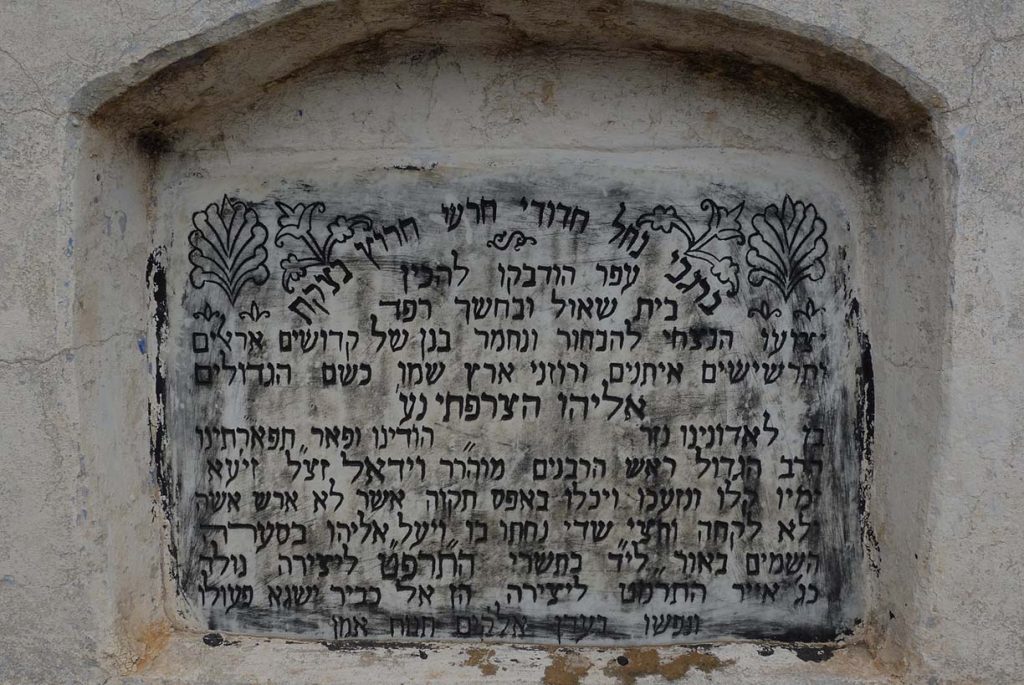 בנחבי נחל חדודי חרש חרוץ נצחק
עפר הודבקו להכין
בית שאול ובחשך רפד
יצועו הנצחי להבחור ונחמר בנן של קדושים אראלים
ותרשישים איתנים ורוזני ארץ שמו כשם הגדולים
אליהו הצרפתי נע
בן לאדונינו נזר הודינו ופאר תפארתינו
הרב הגדול ראש הרבנים מוהרר וידאל זצל זיעא
ימיו קלו ונזעכו ויכלו באפס תקוה אשר לא ארש אשה
ולא לקחה וחצי שדי נחתו בו ויעל אליהו בסערה
השמים באור ליד בתשרי התרפט ליצירה נולד
כג אייר התרמט ליצירה הן אל כביר ישגא פעולו
ונפשו בעדן אלקים תנוח אמן